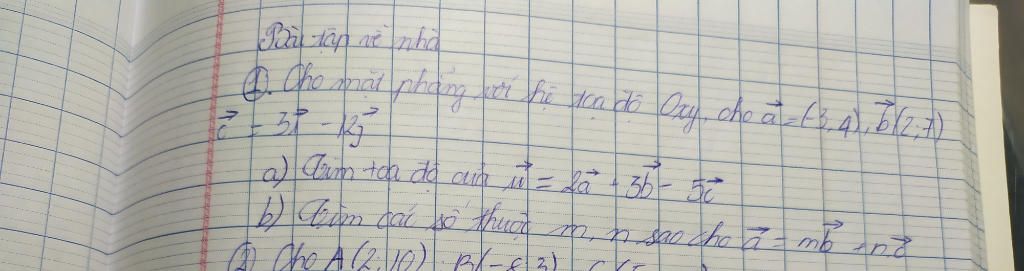 Bài tập về nhà
①. Cho mặt phẳng với hệ tọa độ Oxy, cho a⃗ = (-3; 4), b⃗(2; 7)
c⃗ = 3i⃗ - 12j⃗
a) Tìm tọa độ của u⃗ = 2a⃗ + 3b⃗ - 5c⃗
b) Tìm các số thuộc m, n sao cho a⃗ = mb⃗ + nc⃗
② Cho A(2; 10) B(-8; 3)